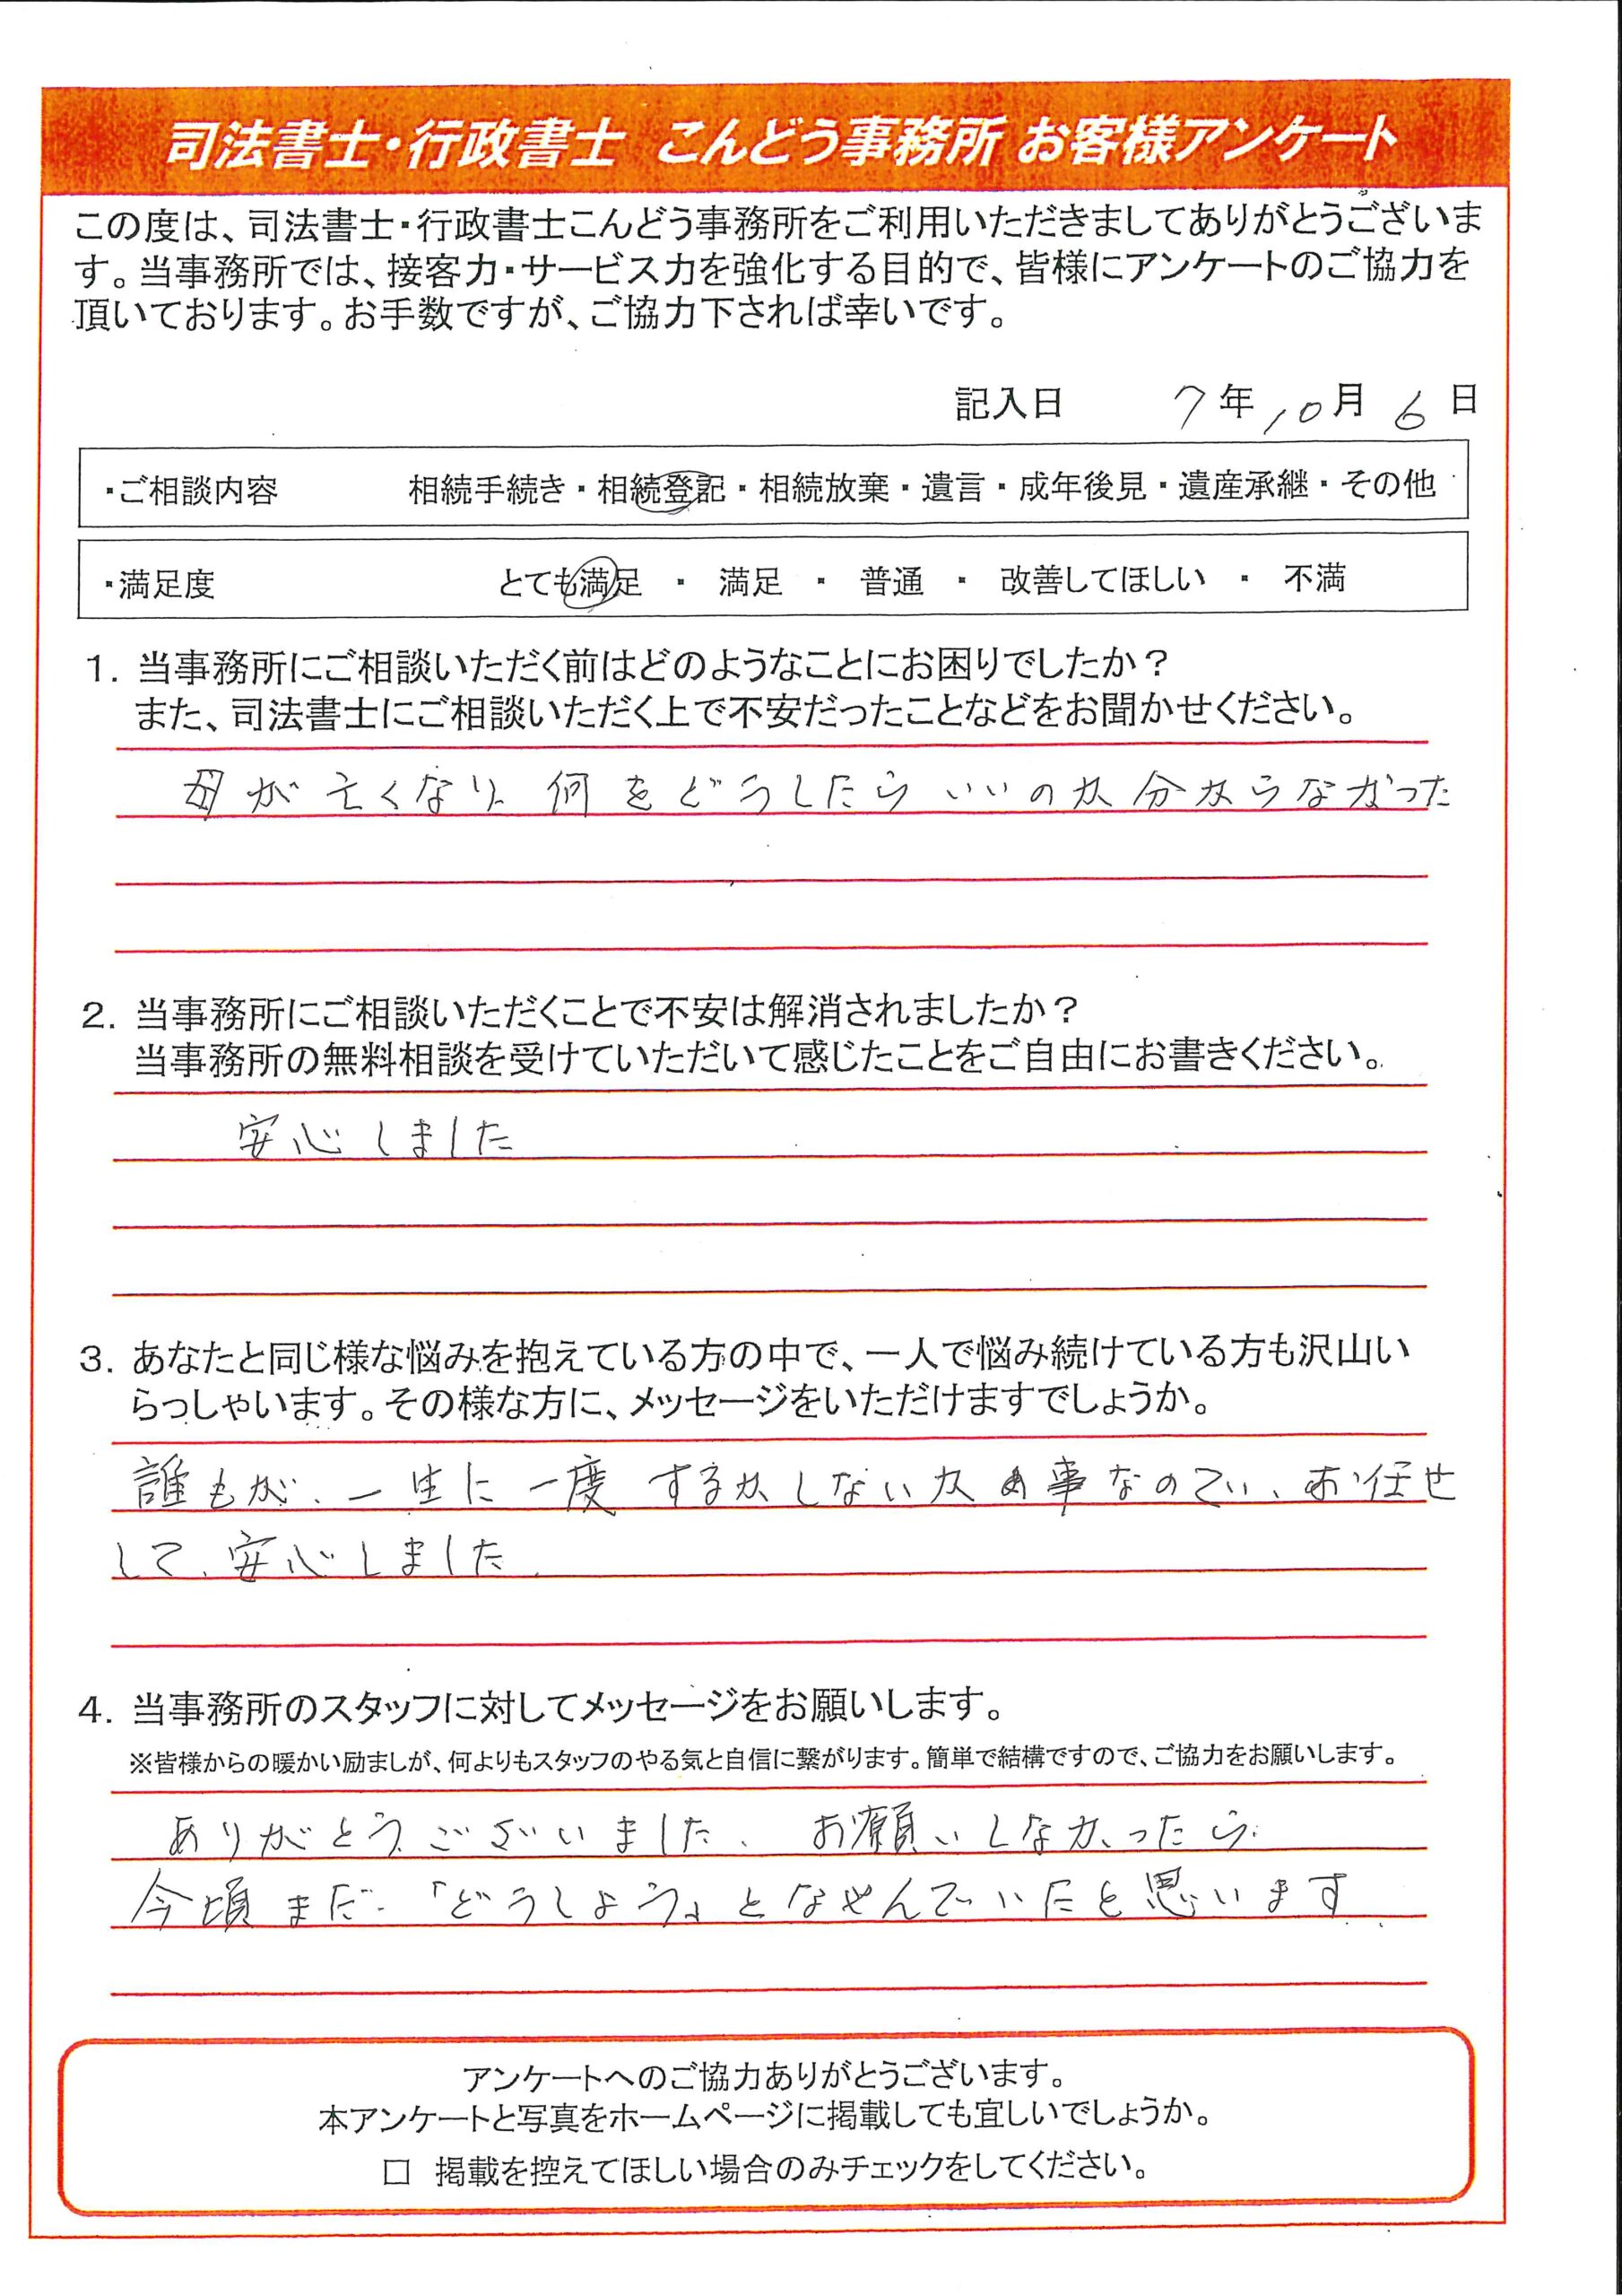 司法書士・行政書士 こんどう事務所 お客様アンケート
この度は、司法書士・行政書士こんどう事務所をご利用いただきましてありがとうございま
す。当事務所では、接客力・サービス力を強化する目的で、皆様にアンケートのご協力を
頂いております。お手数ですが、ご協力下されば幸いです。
記入日 7年10月6日
・ご相談内容 相続手続き・相続登記・相続放棄・遺言・成年後見・遺産承継・その他
・満足度 とても満足 ・ 満足 ・ 普通 ・ 改善してほしい ・ 不満
1. 当事務所にご相談いただく前はどのようなことにお困りでしたか？
また、司法書士にご相談いただく上で不安だったことなどをお聞かせください。
母が亡くなり、何をどうしたらいいのか分からなかった
2. 当事務所にご相談いただくことで不安は解消されましたか？
当事務所の無料相談を受けていただいて感じたことをご自由にお書きください。
安心しました
3. あなたと同じ様な悩みを抱えている方の中で、一人で悩み続けている方も沢山い
らっしゃいます。その様な方に、メッセージをいただけますでしょうか。
誰もが、一生に一度するかしないかの事なので、お任せ
して、安心しました。
4. 当事務所のスタッフに対してメッセージをお願いします。
※皆様からの暖かい励ましが、何よりもスタッフのやる気と自信に繋がります。簡単で結構ですので、ご協力をお願いします。
ありがとうございました。お願いしなかったら
今頃まだ「どうしよう」となやんでいたと思います。
アンケートへのご協力ありがとうございます。
本アンケートと写真をホームページに掲載しても宜しいでしょうか。
□ 掲載を控えてほしい場合のみチェックをしてください。